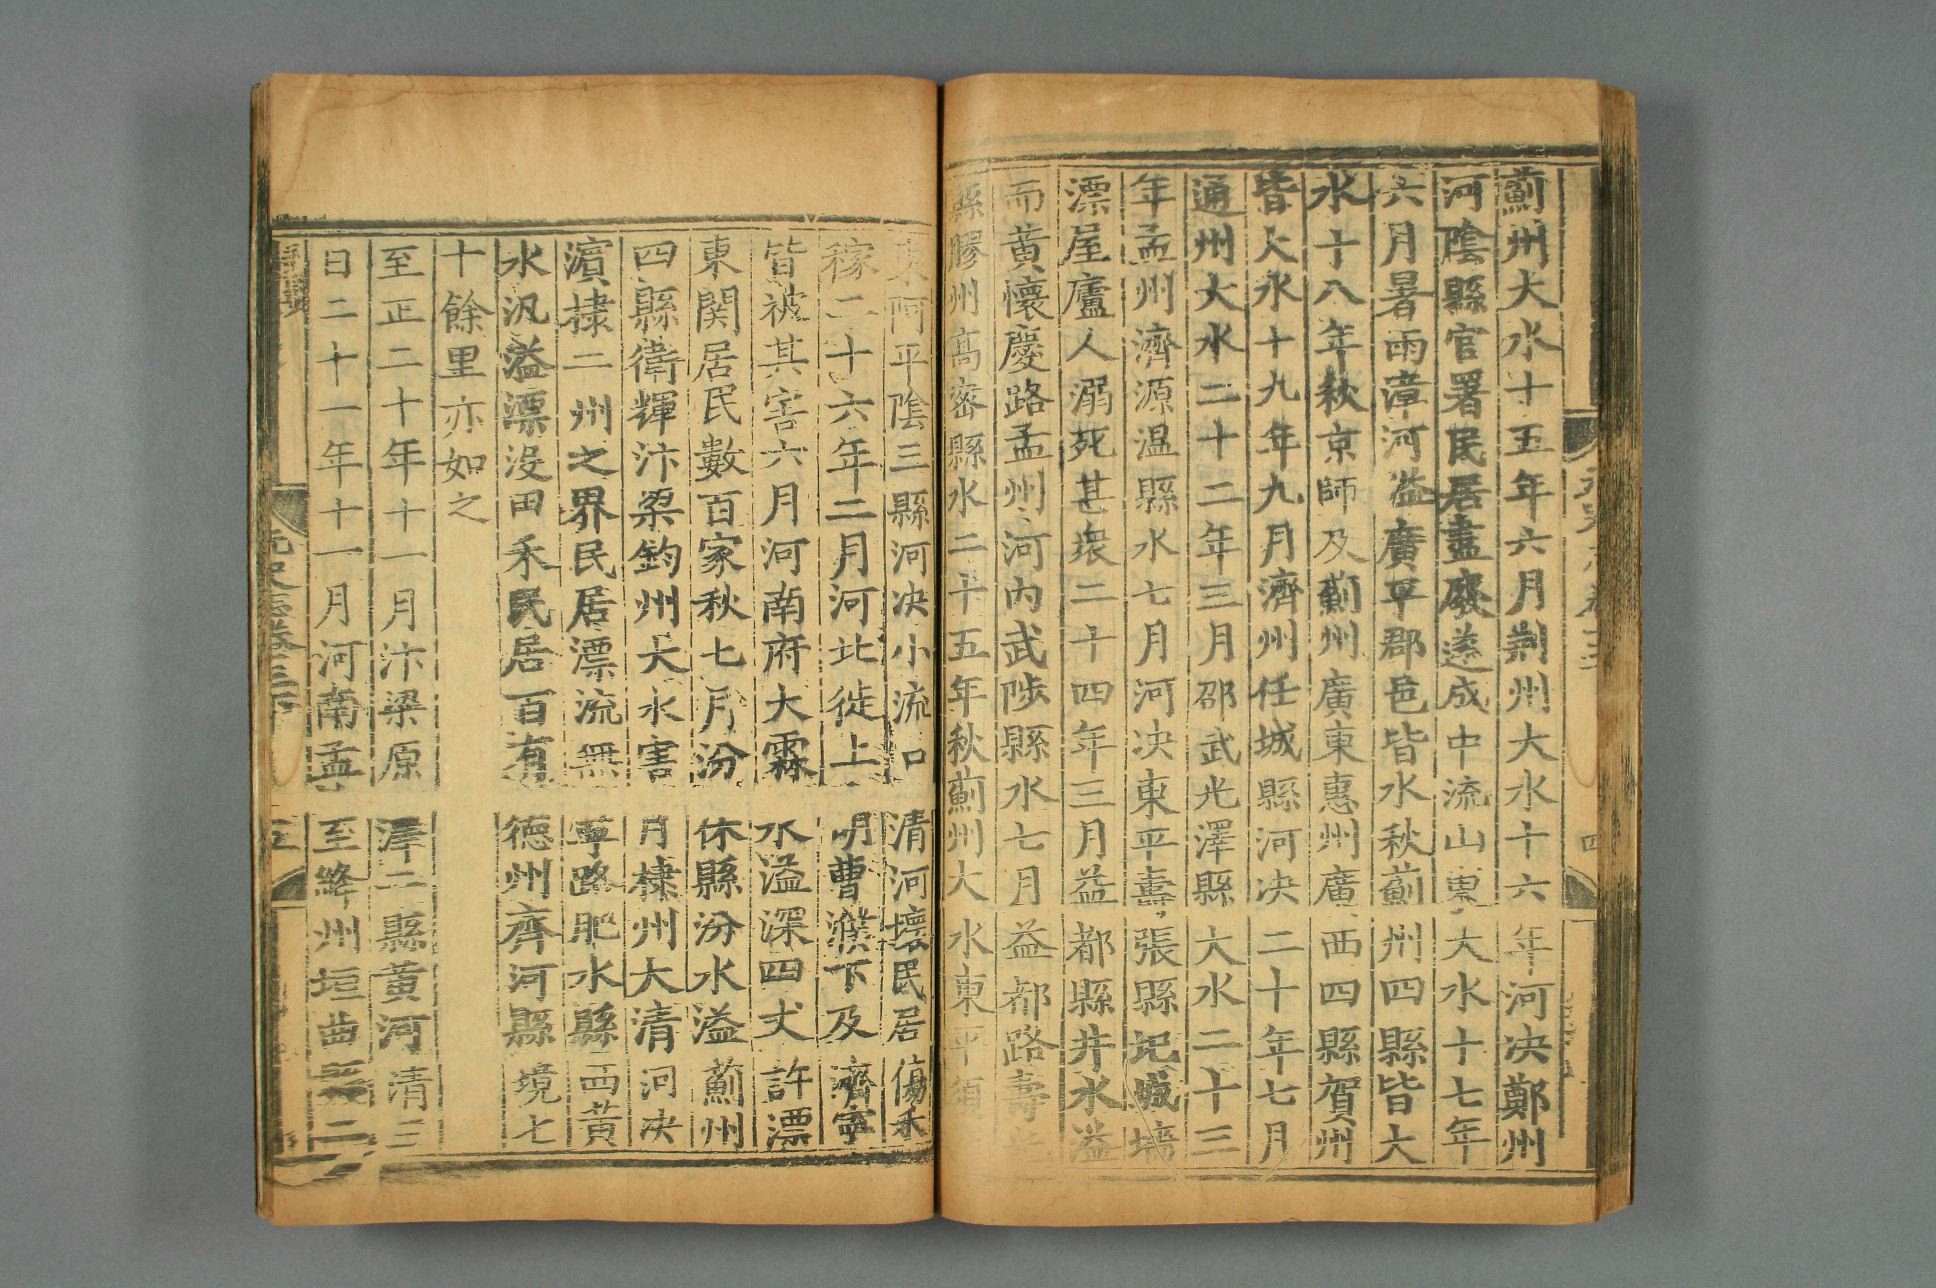 薊州大水十五年六月荆州大水十六年河决鄭州
河陰縣官署民居盡廢遂成中流山東大水十七年
六月暑雨漳河溢廣平郡邑皆水秋薊州四縣皆大
水十八年秋京師及薊州廣東惠州廣西四縣賀州
皆大水十九年九月濟州任城縣河决二十年七月
通州大水二十二年三月邵武光澤縣大水二十三
年孟州濟源温縣水七月河决東平壽張縣圮城墻
漂屋廬人溺死甚衆二十四年三月益都縣井水溢
而黄懷慶路孟州河内武陟縣水七月益都路壽光
縣膠州高密縣水二十五年秋薊州大水東平須
東阿平隂三縣河决小流口清河壞民居傷禾
稼二十六年二月河北徙上明曹濮下及濟寧
皆被其害六月河南府大霖水溢深四丈許漂
東関居民數百家秋七月汾休縣汾水溢薊州
四縣衛輝汴梁鈞州大水害月棣州大清河决
濵棣二州之界民居漂流無寧路肥水縣西黄
水汎溢漂沒田禾民居百有德州齊河縣境七
十餘里亦如之
至正二十年十一月汴梁原澤二縣黄河清三
日二十一年十一月河南孟至絳州垣曲二
元史志卷三下
五
四